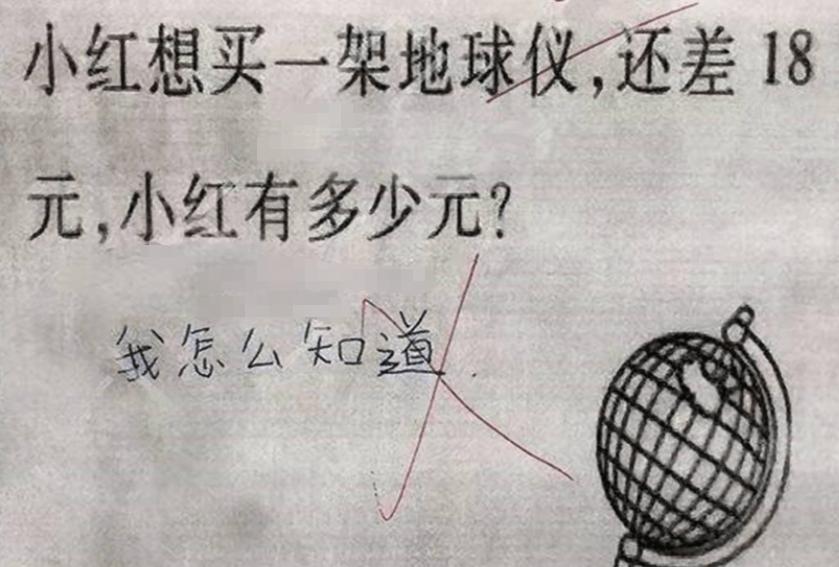 小红想买一架地球仪,还差 18
元,小红有多少元?
我怎么知道.